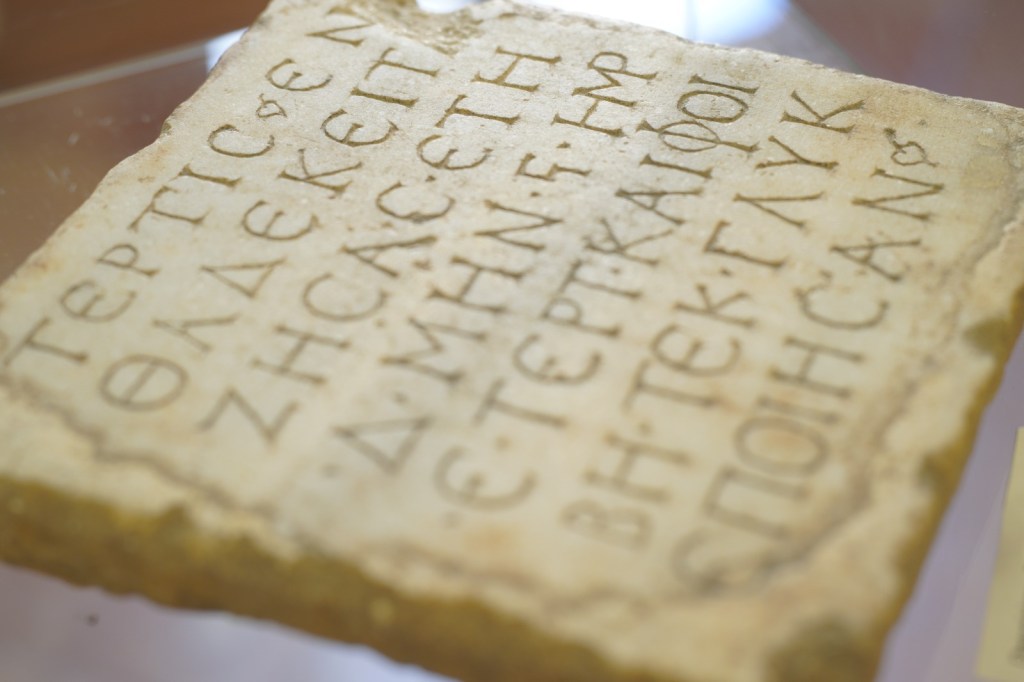 ΤΕΡΤΙϹ ❦ ΕΝ
ΘΑΔΕΚΕΙΤ
ΖΗϹΑϹ·ΕΤΗ
Δ·ΜΗΝ·Ϛ·ΗΜΡ
Ε·ΤΕΡΤ·ΚΑΙΦΟΙ
ΒΗ·ΤΕΚ·ΓΛΥΚ
ΕΠΟΙΗϹΑΝ ❦